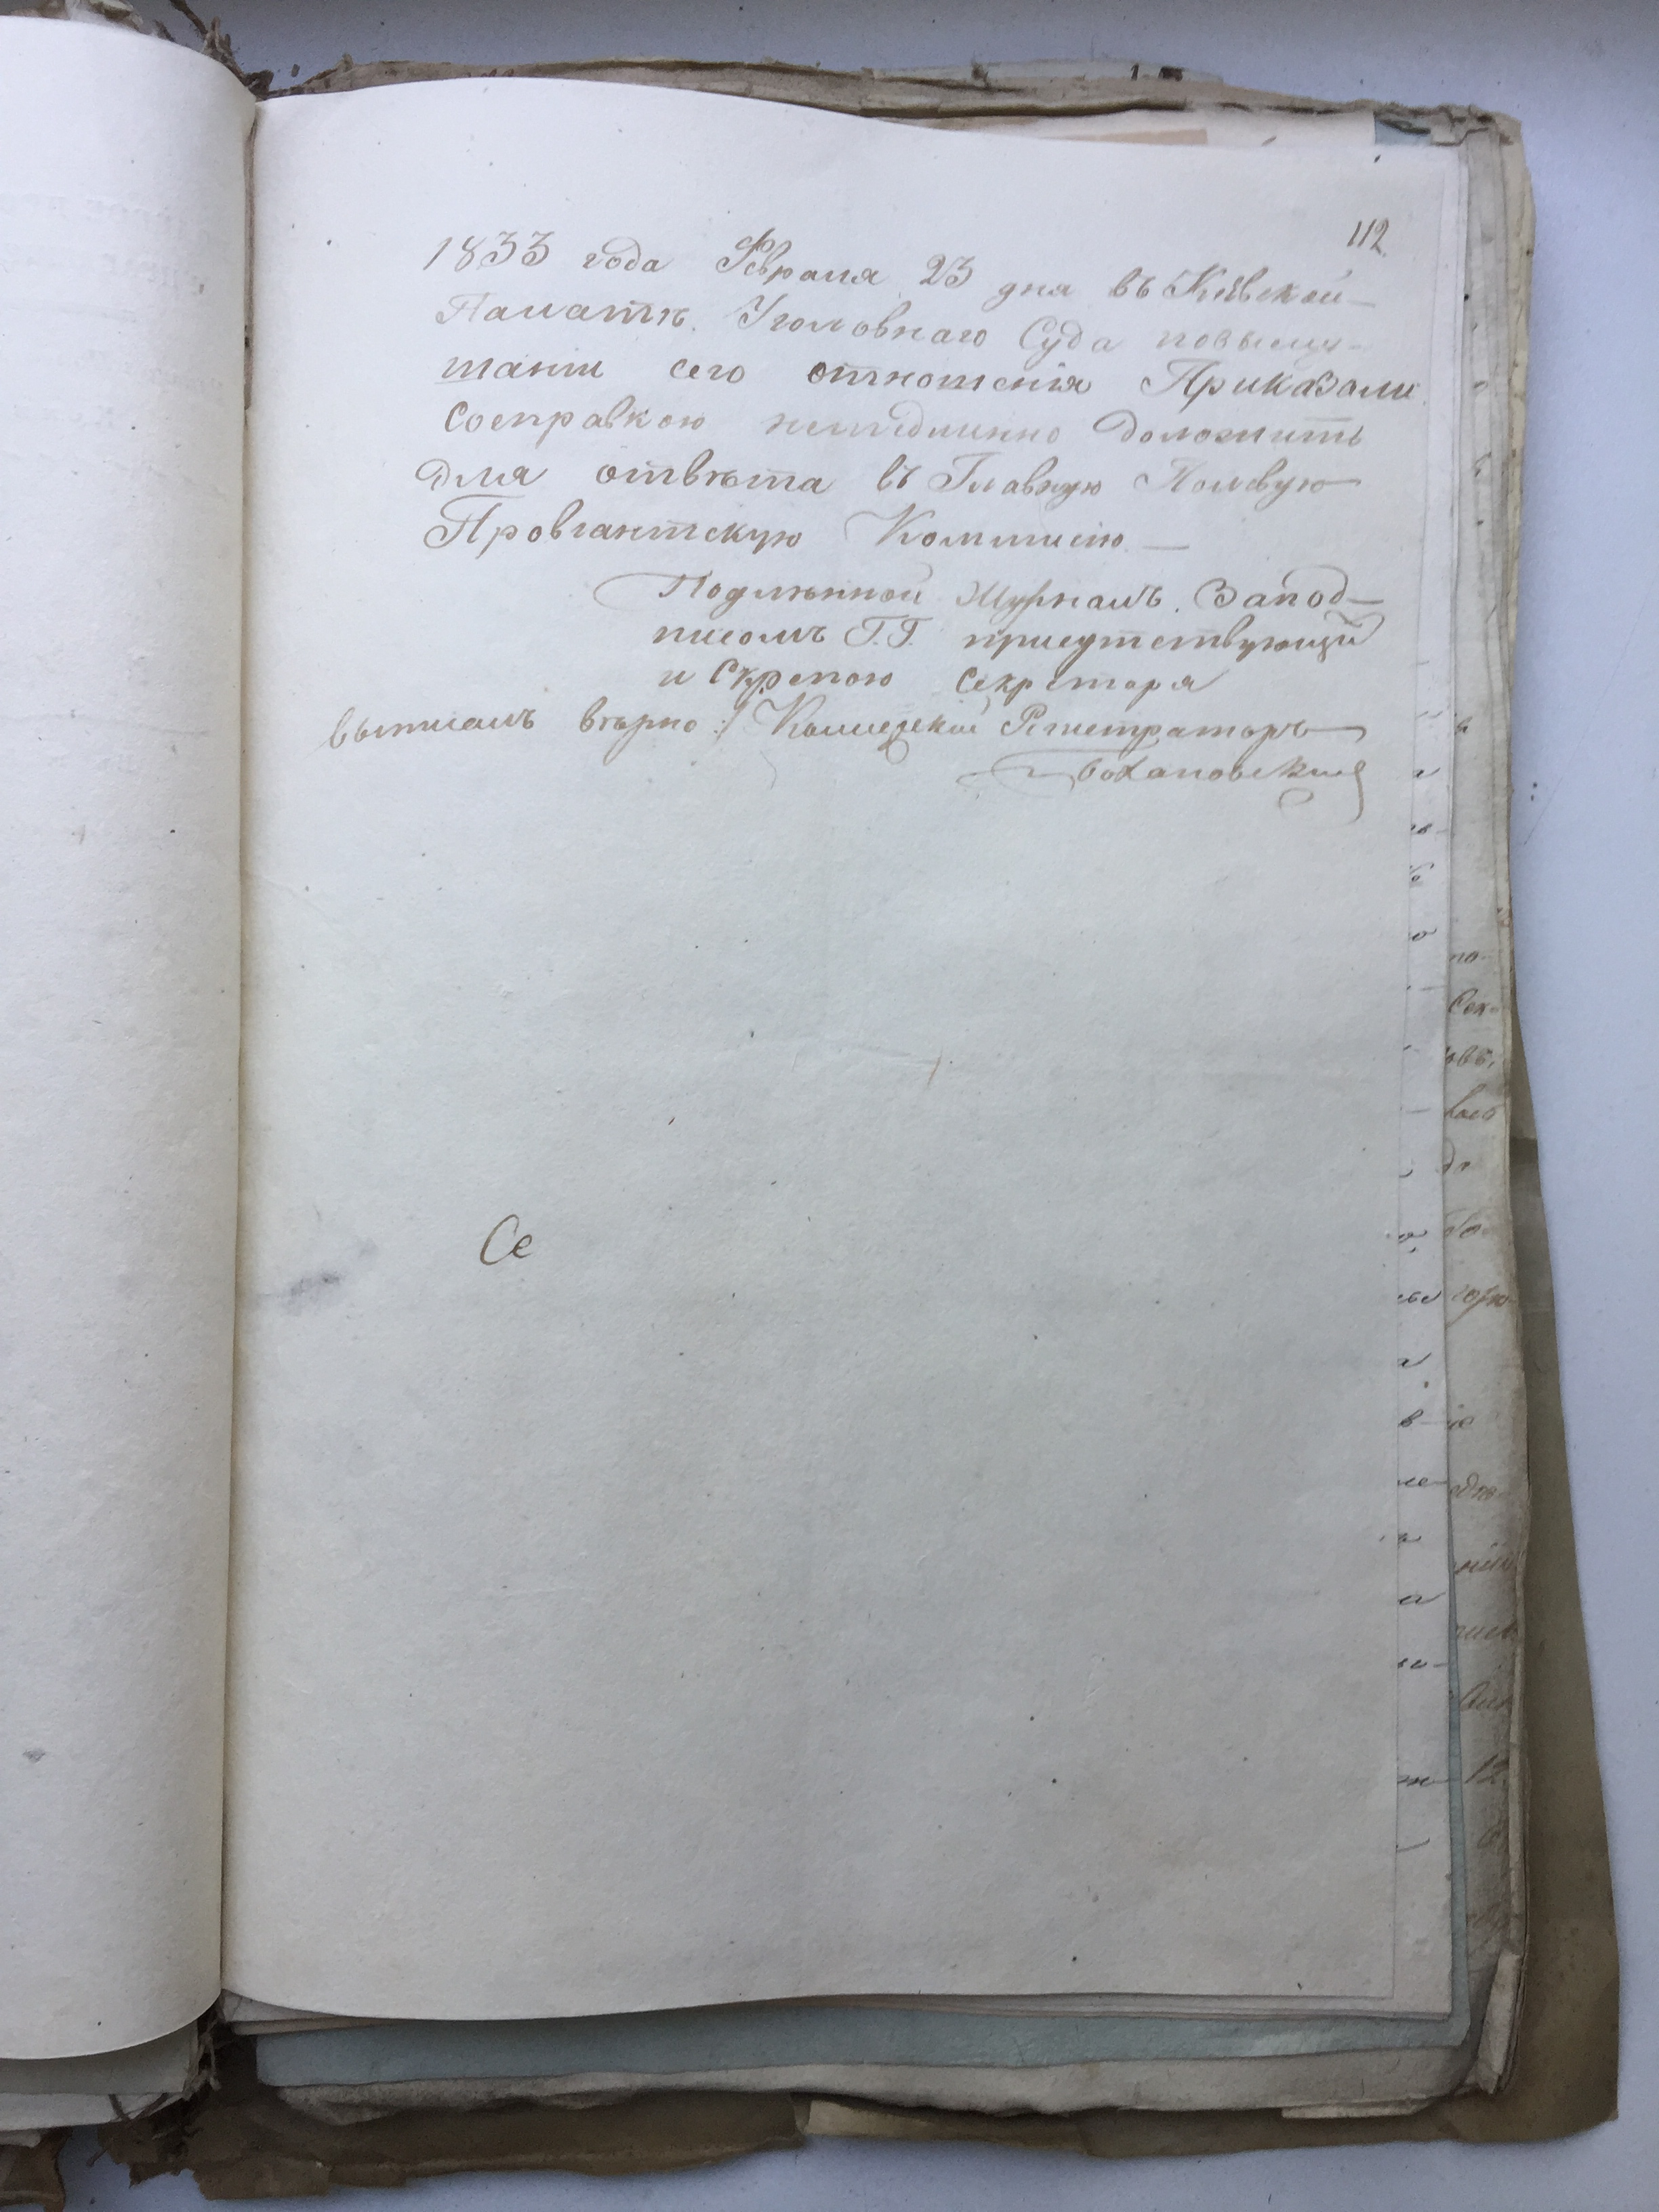 112
1833 года Февраля 23 дня въ Кіевской
Палатѣ Уголовнаго Суда повыслу-
шаніи сего отношенія Приказали
Сосправкою немѣдлинно доложить
для отвѣта въ Главную Полевую
Провіантскую Коммисію —
Подлѣнной Журналъ Запод-
писомъ Г.Г. присутствующи
и Скрепою Секретаря
выписалъ вѣрно: Колежской Регистраторъ
Се